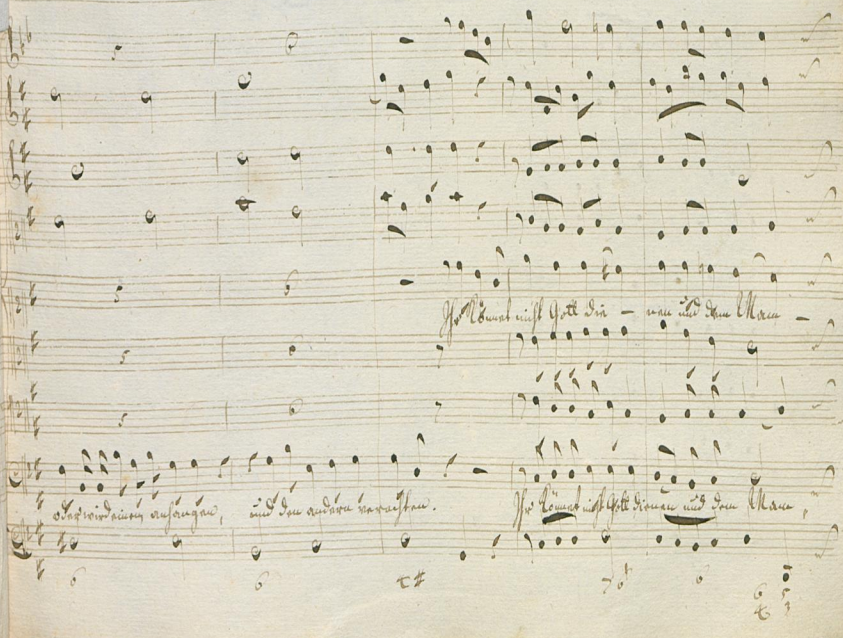 Ihr könnet nicht Gott die – nen und dem Mam –
oder wird einem anhangen, und den andern verachten. Ihr könnet nicht Gott dienen und dem Mam,
6 6 6